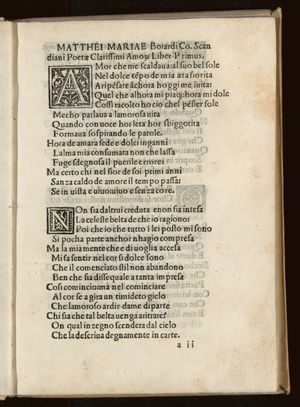 MATTHEI MARIAE Boiardi Co. Scan
diani Poeta Clarissimi Amoꝝ Liber Primus.
AMor che me scaldaua al suo bel sole
Nel dolce tēpo de mia età fiorita
A ripēsare āchora hoggi me iuita
Quel che alhora mi piaq hora mi dole
Cossi racolto ho cio chel pēsier fole
Mecho parlaua a lamorosa uita
Quando con uoce hor leta hor sbigotita
Formaua sospirando le parole.
Hora de amara fede e dolci inganni
Lalma mia consumata non che lassa
Fuge sdegnosa il puerile errore:
Ma certo chi nel fior de soi primi anni
Sanza caldo de amore il tempo passa:
Se in uista e uiuo uiuo e senza core.
NOn fia da altrui creduta e non fia intesa
La celeste belta de che io ragiono:
Poi che io che tutto i lei posto mi sono
Si pocha parte anchor nhagio compresa
Ma la mia mente che e di uoglia accesa
Mi fa sentir nel cor si dolce sono
Che il comenciato stil non abandono
Ben che sia dissequale a tanta impresa
Cosi comincioma nel cominciare
Al cor se agira un timideto gielo
Che lamoroso ardir da me diparte
Chi fia che tal belta uenga aritrare?
On qual inzegno scendera dal cielo
Che la descriua degnamente in carte.
a ii